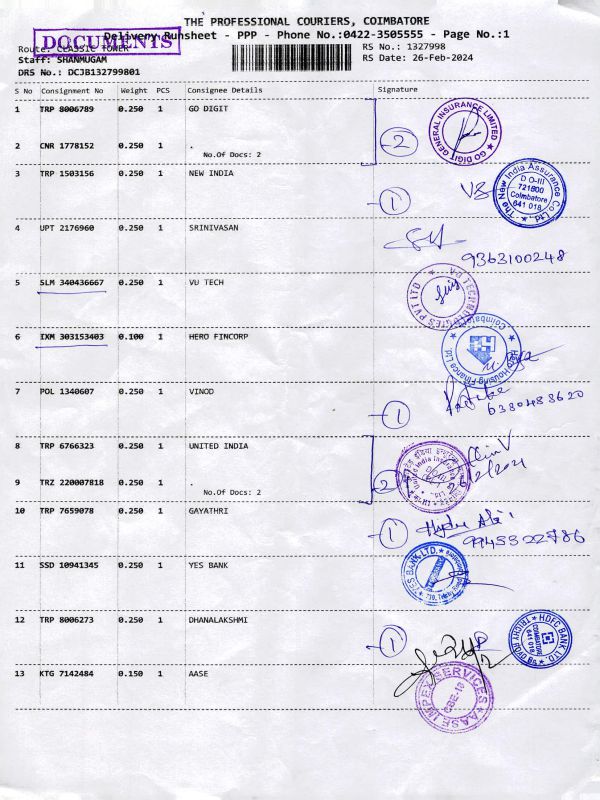 THE PROFESSIONAL COURIERS, COIMBATORE
DOCUMENTS
Delivery Runsheet - PPP - Phone No.:0422-3505555 - Page No.:1
Route: CLASSIC TOWER
RS No.: 1327998
Staff: SHANMUGAM
RS Date: 26-Feb-2024
DRS No.: DCJB132799801
S No Consignment No Weight PCS Consignee Details Signature
1 TRP 8006789 0.250 1 GO DIGIT
GO DIGIT GENERAL INSURANCE LIMITED
2 CNR 1778152 0.250 1 .
2
No.Of Docs: 2
3 TRP 1503156 0.250 1 NEW INDIA
1
The New India Assurance Co. Ltd.
D O-III
721600
Coimbatore
641 018
4 UPT 2176960 0.250 1 SRINIVASAN
9363100248
5 SLM 340436667 0.250 1 VU TECH
VU TECHNOLOGIES PVT LTD
6 IXM 303153403 0.100 1 HERO FINCORP
Housing Finance
Coimbatore
7 POL 1340607 0.250 1 VINOD
1
6380488620
8 TRP 6766323 0.250 1 UNITED INDIA
9 TRZ 220007818 0.250 1 .
2
No.Of Docs: 2
10 TRP 7659078 0.250 1 GAYATHRI
1
9945322786
11 SSD 10941345 0.250 1 YES BANK
YES BANK LTD.
12 TRP 8006273 0.250 1 DHANALAKSHMI
1
HDFC BANK LTD.
TRICHY ROAD
COIMBATORE
641 018
13 KTG 7142484 0.150 1 AASE
AASE IMPEX SERVICES
CBE-18